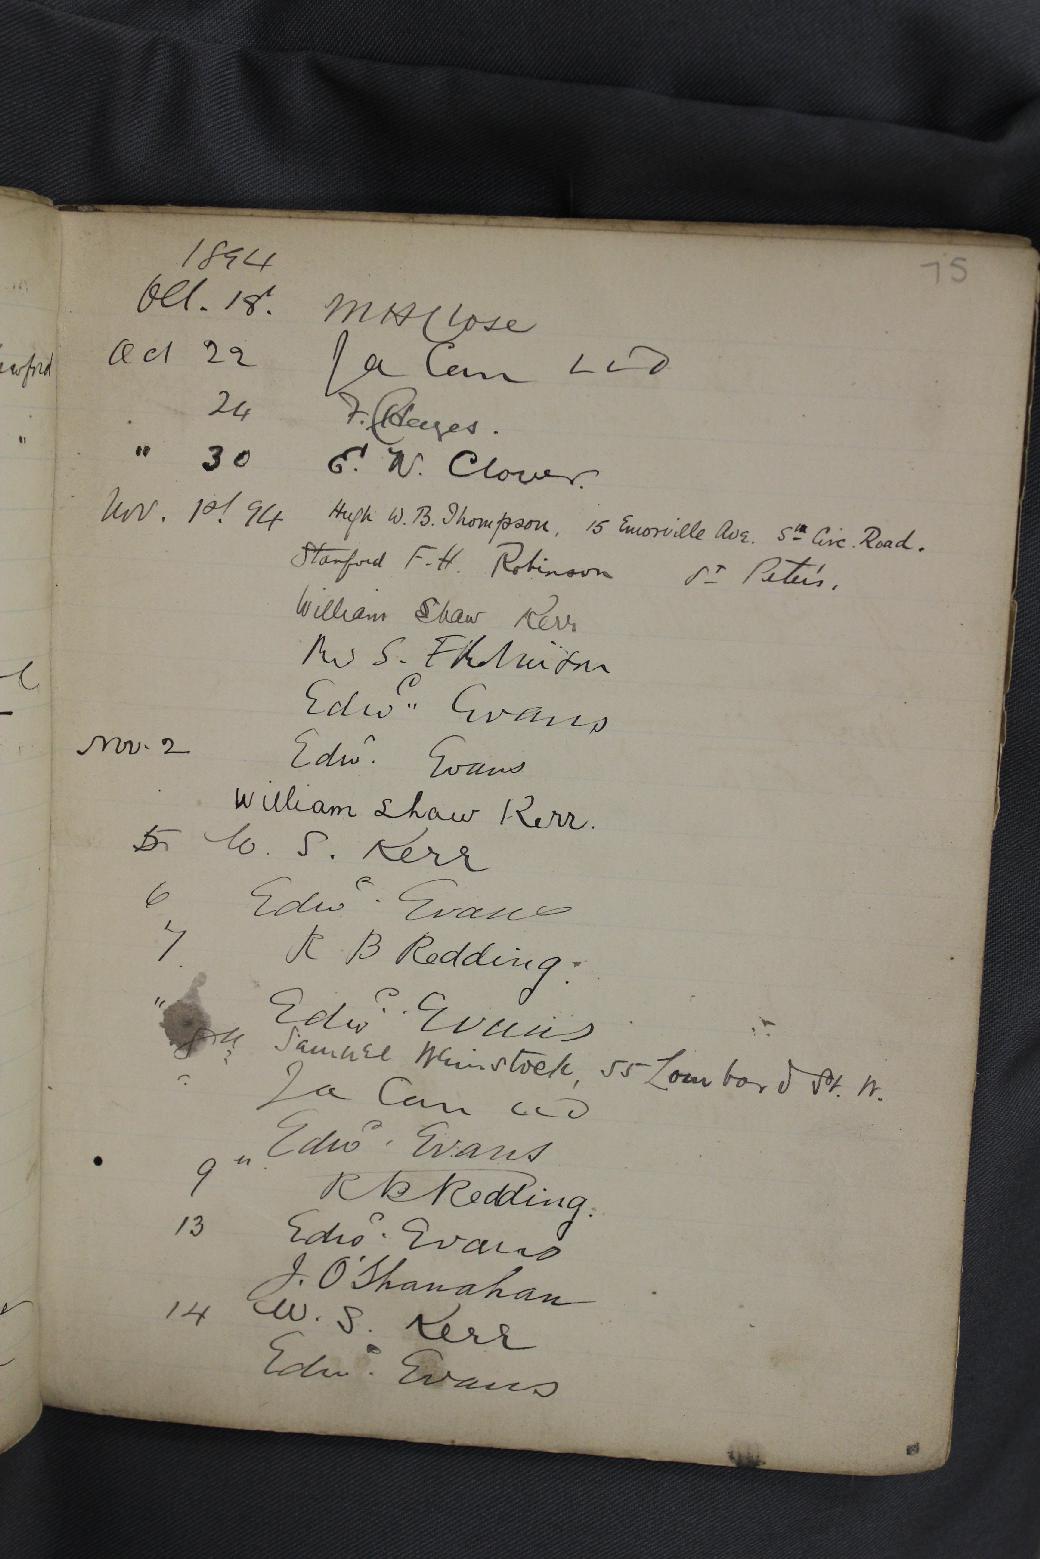 75
1894
Oct. 18. M H Close
Oct 22 Ja Carr LLD
24 F. Hayes.
" 30 E. W. Clover.
Nov. 1st. 94 Hugh W. B. Thompson, 15 Emorville Ave. Sth Circ. Road.
Stanford F. H. Robinson St Peter's.
William Shaw Kerr
S. F Robinson
Edwd. Evans
Nov. 2 Edwd. Evans
William Shaw Kerr.
5 W. S. Kerr
6 Edwd. Evans
7 R B Redding.
" Edwd. Evans
8th Samuel Weinstock, 55 Lombard St. W.
" Ja Carr LLD
Edwd. Evans
9 " R B Redding.
13 Edwd. Evans
J. O'Shanahan
14 W. S. Kerr
Edwd. Evans